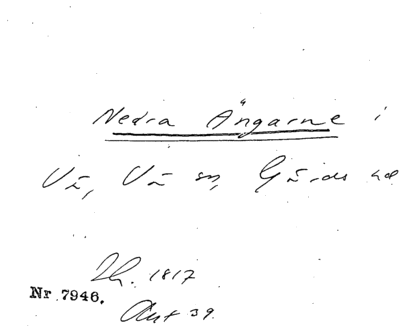 Nedra Ängarne i
Vä, Vä sn, Gärds hd
Th. 1817
Nr 7946.
Akt 39.